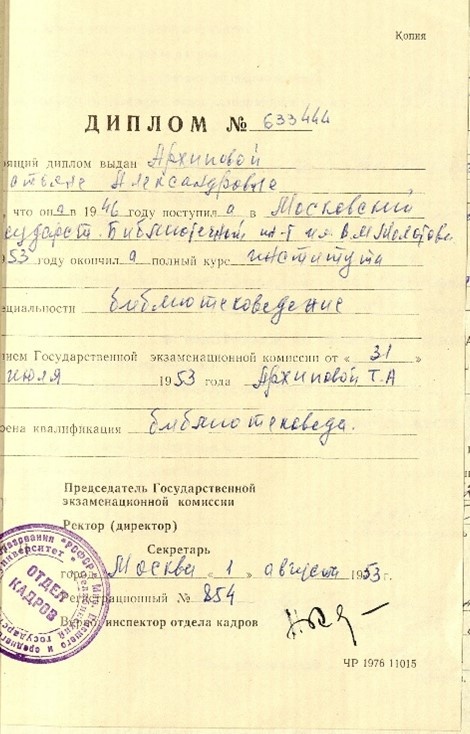 Копия
ДИПЛОМ № 633444
ящий диплом выдан Архиповой
атьяне Александровне
, что она в 1946 году поступила в Московский
сударств. Библиотечный ин-т им. В.М.Молотова
953 году окончила полный курс института
ециальности библиотековедение
ием Государственной экзаменационной комиссии от « 31 »
июля 1953 года Архиповой Т.А
оена квалификация библиотековеда.
Председатель Государственной
экзаменационной комиссии
Ректор (директор)
Секретарь
город Москва « 1 » август 1953 г.
Регистрационный № 854
Верно: инспектор отдела кадров
ОТДЕЛ
КАДРОВ
ЧР 1976 11015